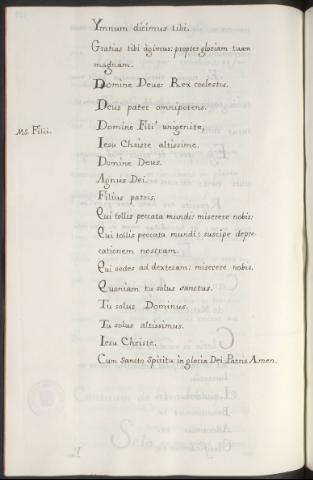 Ymnum dicimus tibi.
Gratias tibi agimus: propter gloriam tuam
magnam.
Domine Deus: Rex coelestis.
Deus pater omnipotens.
MS. Filii. Domine Fili unigenite,
Iesu Christe altissime.
Domine Deus.
Agnus Dei.
Filius patris.
Qui tollis peccata mundi: miserere nobis:
Qui tollis peccata mundi: suscipe depre-
cationem nostram.
Qui sedes ad dexteram: miserere nobis.
Quoniam tu solus sanctus.
Tu solus Dominus.
Tu solus altissimus.
Iesu Christe.
Cum Sancto Spiritu in gloria Dei Patris Amen.